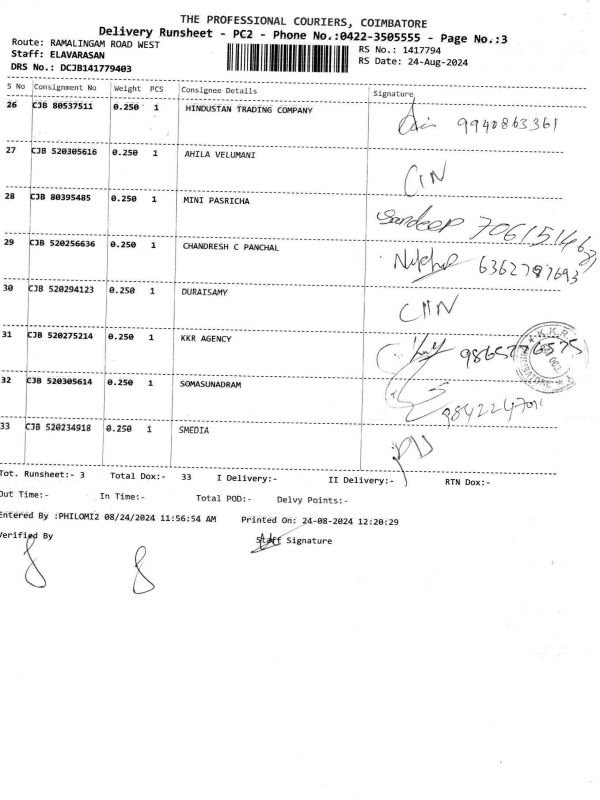 THE PROFESSIONAL COURIERS, COIMBATORE
Delivery Runsheet - PC2 - Phone No.:0422-3505555 - Page No.:3
Route: RAMALINGAM ROAD WEST
RS No.: 1417794
Staff: ELAVARASAN
RS Date: 24-Aug-2024
DRS No.: DCJB141779403
S No Consignment No Weight PCS Consignee Details Signature
26 CJB 80537511 0.250 1 HINDUSTAN TRADING COMPANY
9940863361
27 CJB 520305616 0.250 1 AHILA VELUMANI
28 CJB 80395485 0.250 1 MINI PASRICHA
Sandeep
29 CJB 520256636 0.250 1 CHANDRESH C PANCHAL
6362787693
30 CJB 520294123 0.250 1 DURAISAMY
31 CJB 520275214 0.250 1 KKR AGENCY
K.K.R.
32 CJB 520305614 0.250 1 SOMASUNADRAM
33 CJB 520234918 0.250 1 SMEDIA
Tot. Runsheet:- 3 Total Dox:- 33 I Delivery:- II Delivery:- RTN Dox:-
Out Time:- In Time:- Total POD:- Delvy Points:-
Entered By :PHILOMI2 08/24/2024 11:56:54 AM Printed On: 24-08-2024 12:20:29
Verified By Staff Signature